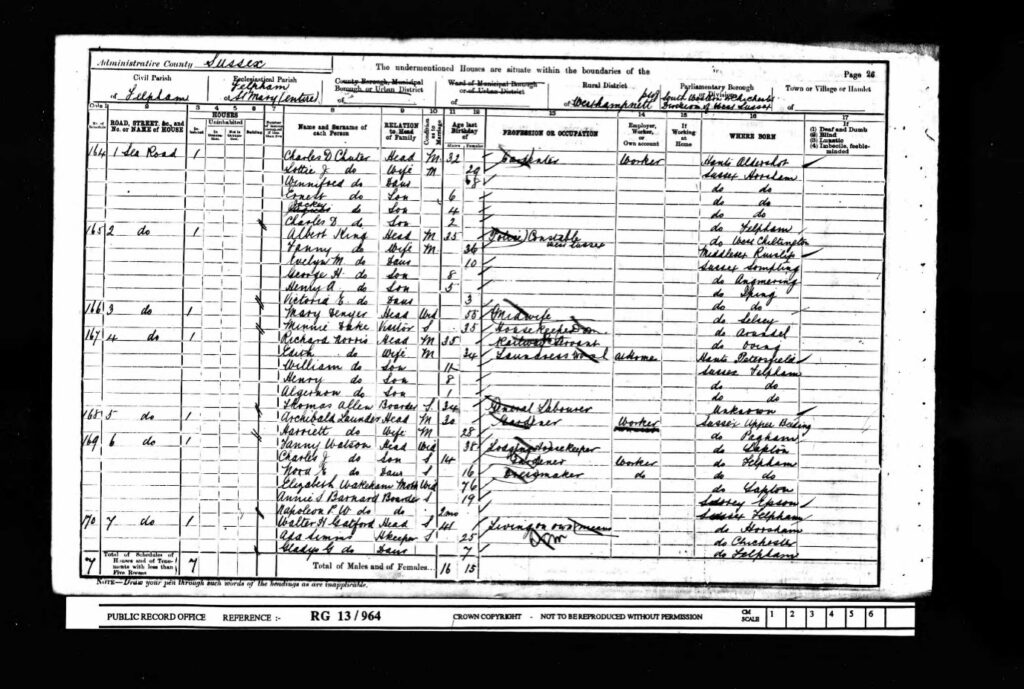 Administrative County Sussex
The undermentioned Houses are situate within the boundaries of the
Page 26
Civil Parish
of Felpham
Ecclesiastical Parish
Felpham
of St Mary (entire)
County Borough, Municipal Borough or Urban District
of
Ward of Municipal Borough or of Urban District
of
Rural District
of Westhampnett
Parliamentary Borough or Division
of
Division of West Sussex
Town or Village or Hamlet
of
ROAD, STREET, &c., and No. or NAME of HOUSE
HOUSES
Uninhabited
Name and Surname of each Person
RELATION to Head of Family
Condition as to Marriage
Age last Birthday of
PROFESSION OR OCCUPATION
Employer, Worker, or Own account
If Working at Home
WHERE BORN
(1) Deaf and Dumb
(2) Blind
(3) Lunatic
(4) Imbecile, feeble-minded
164 1 Sea Road 1 Charles D Chuter Head M 32 Carpenter Worker Hants Aldershot
Lottie J. do Wife M 29 Sussex Horsham
Winnifred do Daur 8 do do
Ernest do Son 6 do do
do Son 4 do do
Charles D. do Son 2 do Felpham
165 2 do 1 Albert King Head M 35 Police Constable West Sussex do West Chiltington
Fanny do Wife M 36 Middlesex Ruislip
Evelyn M. do Daur 10 Sussex Sompting
George H. do Son 8 do Angmering
Henry A. do Son 5 do
Victoria E. do Daur 3 do do
166 3 do 1 Mary Fenyer Head Wid 58 Midwife do Selsey
Minnie Lake Visitor S 35 Housekeeper Dom do Arundel
167 4 do 1 Richard Norris Head M 35 Railway Servant do Oving
Edith do Wife M 34 Laundress At Home Hants Petersfield
William do Son 11 Sussex Felpham
Henry do Son 8 do do
Algernon do Son 1 do do
Thomas Allen Boarder S 34 General Labourer Unknown
168 5 do 1 Archibald Launder Head M 30 Gardener Worker Sussex Upper Beeding
Harriett do Wife M 28 do Pagham
169 6 do 1 Fanny Watson Head Wid 38 Lodging Housekeeper do Clapton
Charles J. do Son S 14 Gardener Worker do Felpham
Nora E. do Daur S 16 Dressmaker do do do
Elizabeth Wakeham Moth Wid 76 do Clapton
Annie S Barnard Boarder S 19 Surrey Epsom
Napoleon P. W. do do 2mo Sussex Felpham
170 7 do 1 Walter H Gatford Head S 41 Living on own means do Horsham
Ada Simms Hkeeper S 25 do Chichester
Gladys G. do Daur 7 do Felpham
7 Total of Schedules of Houses and of Tenements with less than Five Rooms 7
Total of Males and of Females... 16 15
NOTE—Draw your pen through such words of the headings as are inapplicable.
PUBLIC RECORD OFFICE REFERENCE :- RG 13/964 CROWN COPYRIGHT - NOT TO BE REPRODUCED WITHOUT PERMISSION CM SCALE 1 2 3 4 5 6